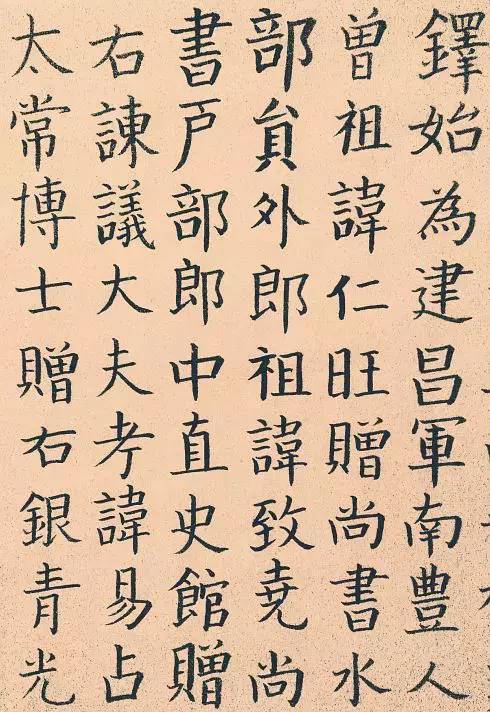 鐸始為建昌軍南豐人
曾祖諱仁旺贈尚書水
部貟外郎祖諱致堯尚
書戸部郎中直史館贈
右諫議大夫考諱易占
太常博士贈右銀青光